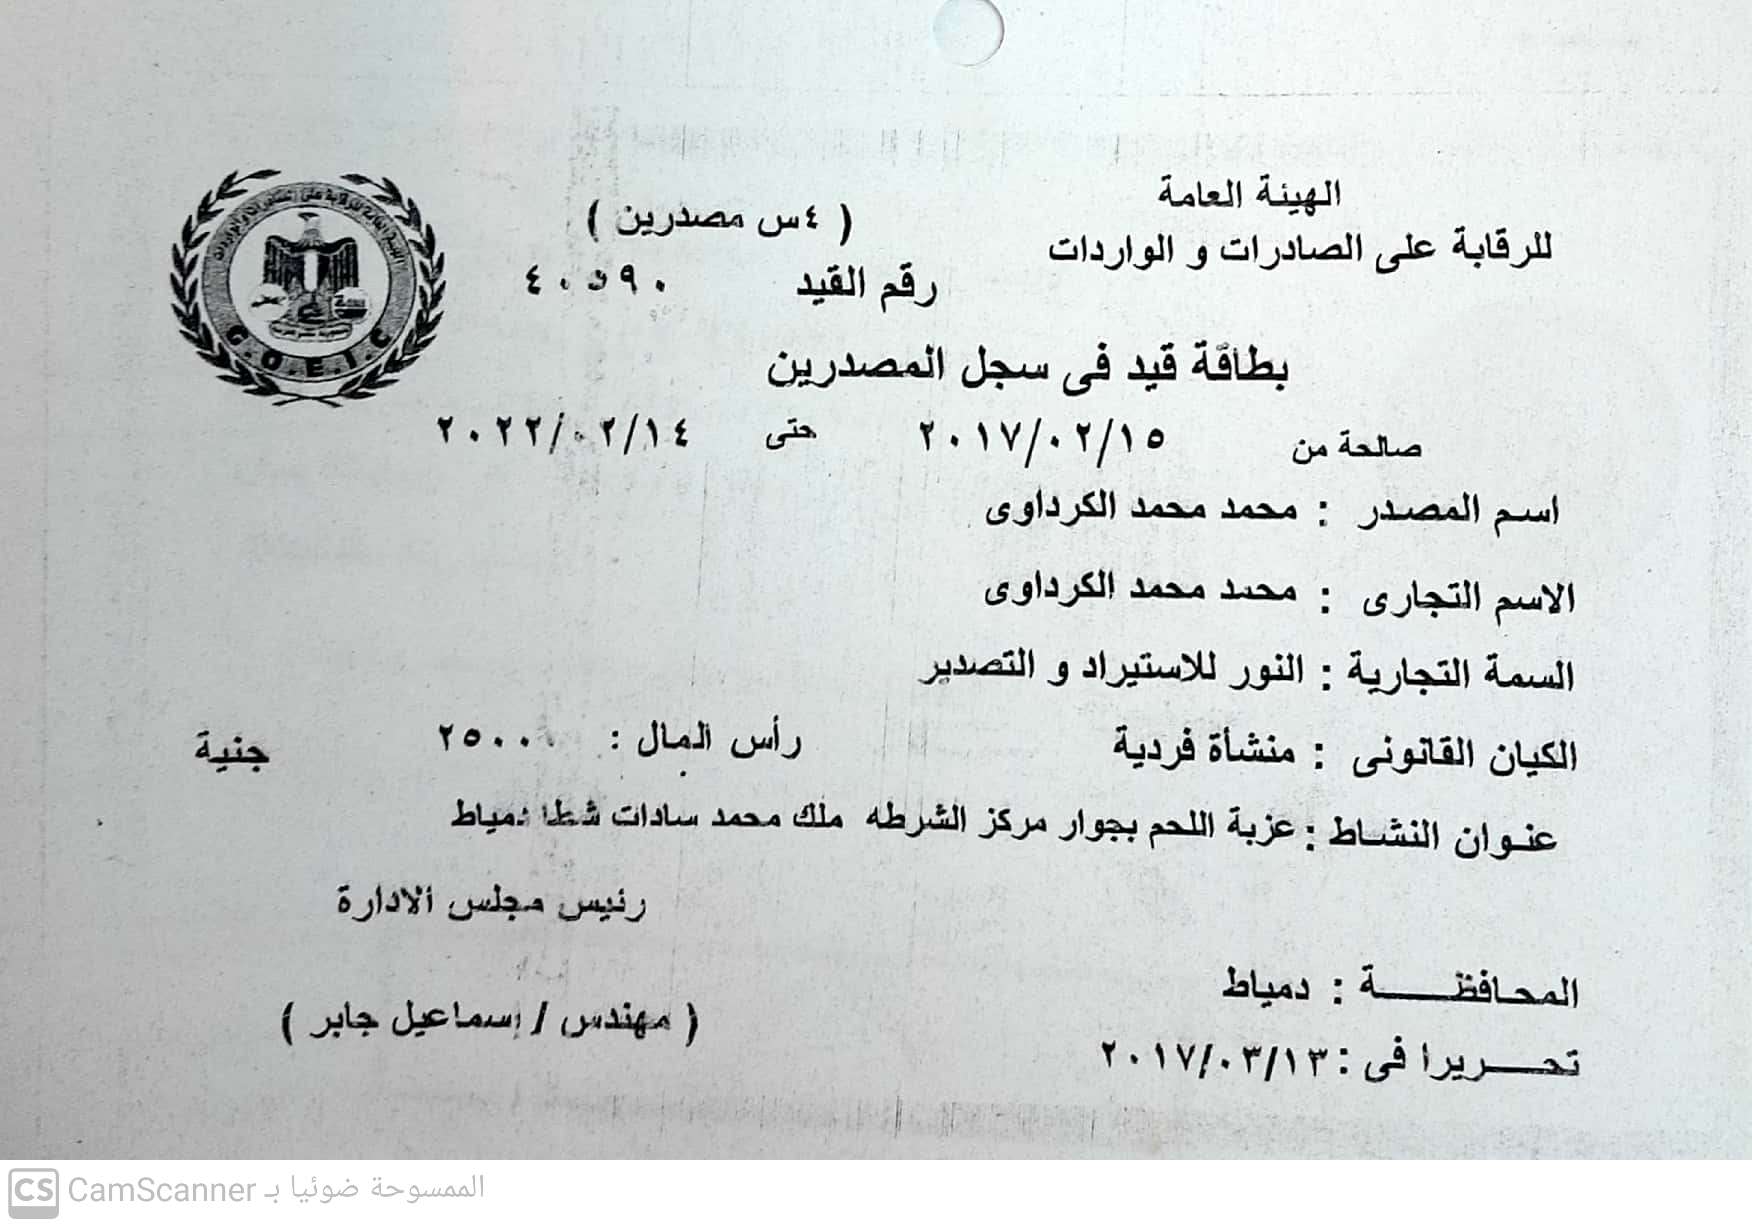 الهيئة العامة
للرقابة على الصادرات و الواردات
( ٤س مصدرين )
رقم القيد
بطاقة قيد فى سجل المصدرين
صالحة من ٢٠١٧/٠٢/١٥ حتى ٢٠٢٢/٠٢/١٤
اسم المصدر : محمد محمد الكرداوى
الاسم التجارى : محمد محمد الكرداوى
السمة التجارية : النور للاستيراد و التصدير
الكيان القانونى : منشأة فردية رأس المال : جنية
عنوان النشاط : عزبة اللحم بجوار مركز الشرطه ملك محمد سادات شطا دمياط
رئيس مجلس الادارة
( مهندس / إسماعيل جابر )
المحافظة : دمياط
تحريرا فى : ٢٠١٧/٠٣/١٣
G.O.E.I.C
CS CamScanner الممسوحة ضوئيا بـ